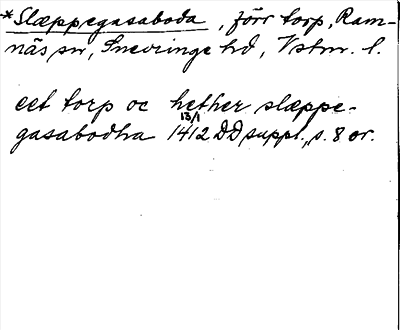 *Slæppegasaboda, förr torp, Ram-
näs sn, Snevringe hd, Vstm. l.
eet torp oc hether slæppe-
gasabodha 13/1 1412 DD suppl., s. 8 or.